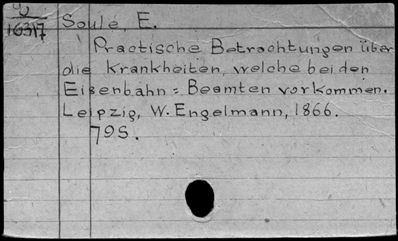 16317
Soulé, E.
Practische Betrachtungen über
die Krankheiten, welche bei den
Eisenbahn = Beamten vorkommen.
Leipzig, W. Engelmann, 1866.
79S.